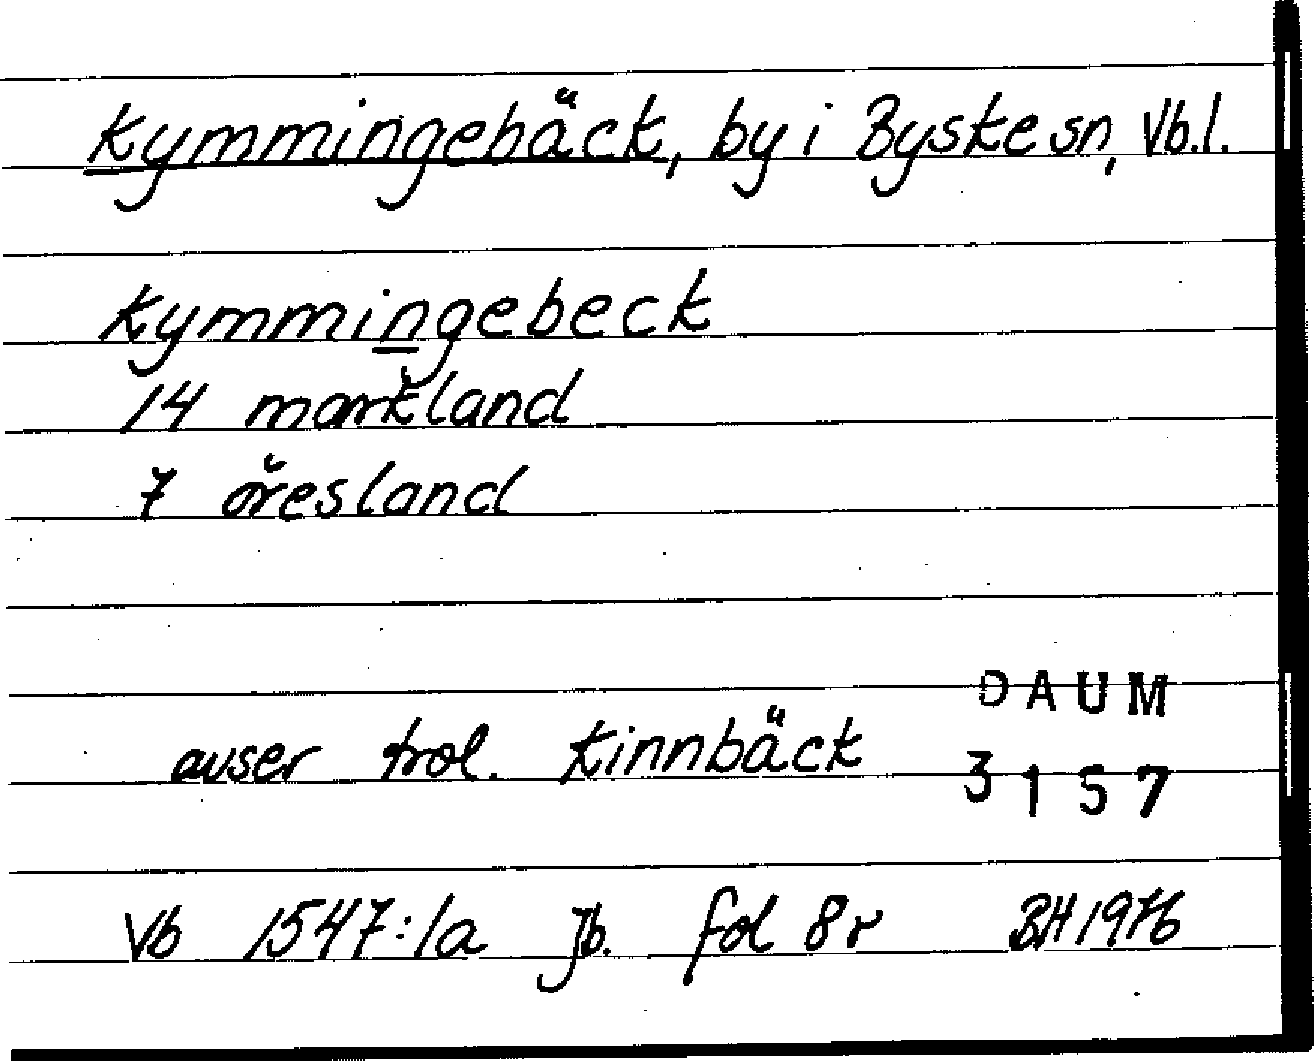 Kymmingebäck, by i Byske sn, Vb.l.
Kymmingebeck
14 markland
7 öresland
DAUM
avser trol. Kinnbäck
3157
Vb 1547:1a Jb. fol 8r BH 1976